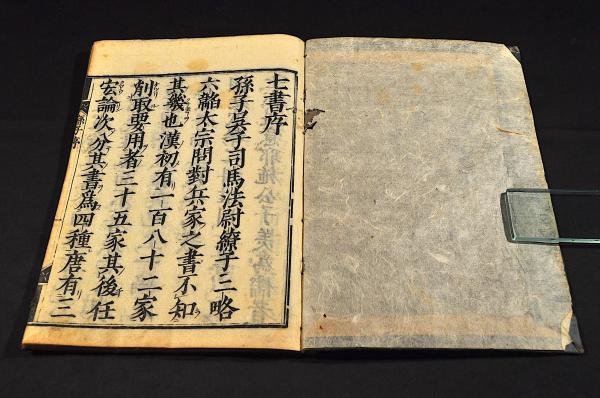 七書序
孫子吳子司馬法尉繚子三略
六韜太宗問對兵家之書不知
其幾也漢初有一百八十二家
削取要用者三十五家其後任
宏論次分其書爲四種唐有三